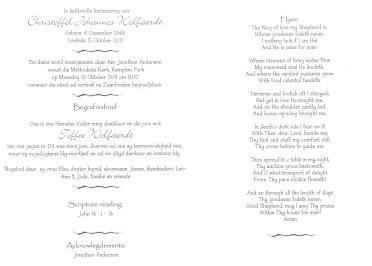 In liefdevolle herinnering aan
Christoffel Johannes Wolfaardt
Gebore 9 Desember 1945
Oorlede 5 Oktober 2011
Die diens word waargeneem deur Ker Jonathan Anderson
vanuit die Methodiste Kerk, Kempton Park
op Maandag 10 Oktober 2011 om 11:00
vanwaar die stoet sal vertrek na Zuurfontein begraafplaas.
Begrafnisbrief
Ons is ons Hemelse Vader innig dankbaar vir die jare wat
Toffee Wolfaardt
aan ons gegun is. Dit was mooi jare, daarom sal ons sy teenwoordigheid mis,
maar sy nagedagtenis bly voortleef en sal vir altyd dierbaar en kosbaar bly.
Nagelaat deur sy vrou Elna, dogter Ingrid, skoonseun Jannie, kleinkinders Lee-
Ann & Jade, familie en vriende
Scripture reading
John 14 : 1 - 14
Acknowledgements
Jonathan Anderson
Hymn
The King of love my Shepherd is,
Whose goodness faileth never;
I nothing lack if I am His
And He is mine for ever.
Where streams of living water flow
My ransomed soul He leadeth,
And where the verdant pastures grow
With food celestial feedeth.
Perverse and foolish oft I strayed,
But yet in love He sought me,
And on His shoulder gently laid,
And home rejoicing brought me.
In death's dark vale I fear no ill
With Thee, dear Lord, beside me;
Thy rod and staff my comfort still,
Thy cross before to guide me.
Thou spread'st a table in my sight;
Thy unction grace bestoweth;
And O what transport of delight
From Thy pure chalice floweth!
And so through all the length of days
Thy goodness faileth never;
Good Shepherd, may I sing Thy praise
Within Thy house for ever!
Amen